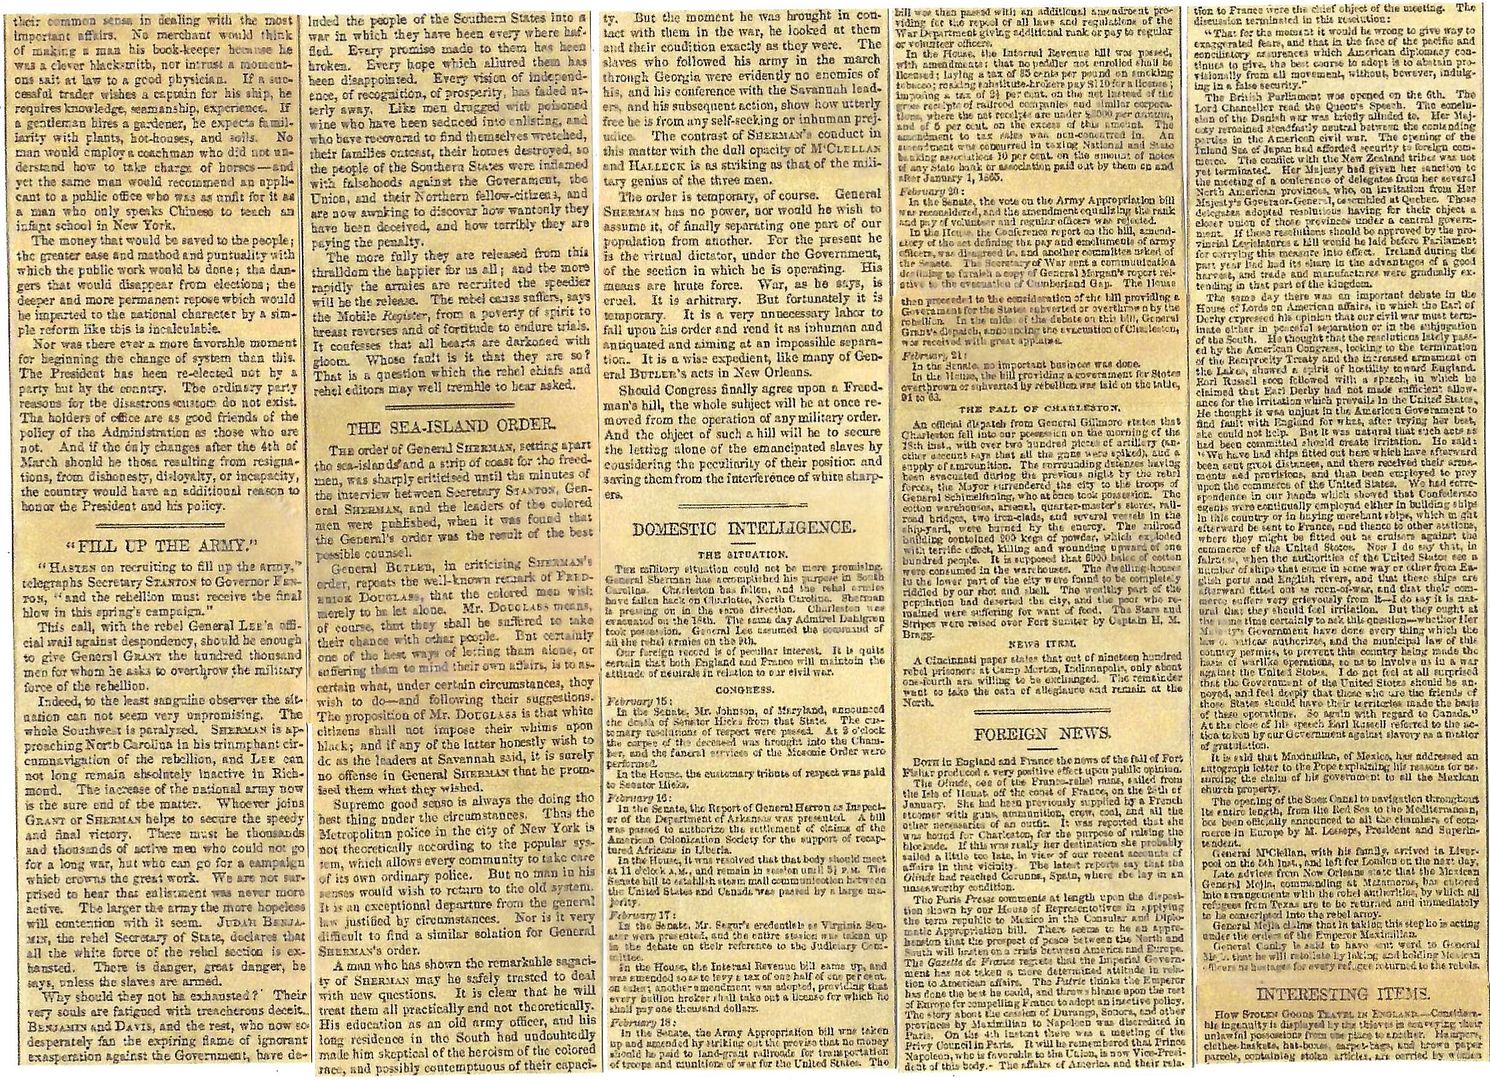 their common sense in dealing with the most
important affairs. No merchant would think
of making a man his book-keeper because he
was a clever blacksmith, nor intrust a moment-
ous suit at law to a good physician. If a suc-
cessful trader wishes a captain for his ship, he
requires knowledge, seamanship, experience. If
a gentleman hires a gardener, he expects famil-
iarity with plants, hot-houses, and soils. No
man would employ a coachman who did not un-
derstand how to take charge of horses—and
yet the same man would recommend an appli-
cant to a public office who was as unfit for it as
a man who only speaks Chinese to teach an
infant school in New York.
The money that would be saved to the people;
the greater ease and method and punctuality with
which the public work would be done; the dan-
gers that would disappear from elections; the
deeper and more permanent repose which would
be imparted to the national character by a sim-
ple reform like this is incalculable.
Nor was there ever a more favorable moment
for beginning the change of system than this.
The President has been re-elected not by a
party but by the country. The ordinary party
reasons for the disastrous custom do not exist.
The holders of office are as good friends of the
policy of the Administration as those who are
not. And if the only changes after the 4th of
March should be those resulting from resigna-
tions, from dishonesty, disloyalty, or incapacity,
the country would have an additional reason to
honor the President and his policy.
"FILL UP THE ARMY."
"HASTEN on recruiting to fill up the army,"
telegraphs Secretary STANTON to Governor FEN-
TON, "and the rebellion must receive the final
blow in this spring's campaign."
This call, with the rebel General LEE's offi-
cial wail against despondency, should be enough
to give General GRANT the hundred thousand
men for whom he asks to overthrow the military
force of the rebellion.
Indeed, to the least sanguine observer the sit-
uation can not seem very unpromising. The
whole Southwest is paralyzed. SHERMAN is ap-
proaching North Carolina in his triumphant cir-
cumnavigation of the rebellion, and LEE can
not long remain absolutely inactive in Rich-
mond. The increase of the national army now
is the sure end of the matter. Whoever joins
GRANT or SHERMAN helps to secure the speedy
and final victory. There must be thousands
and thousands of active men who could not go
for a long war, but who can go for a campaign
which crowns the great work. We are not sur-
prised to hear that enlistment was never more
active. The larger the army the more hopeless
will contention with it seem. JUDAH BENJA-
MIN, the rebel Secretary of State, declares that
all the white force of the rebel section is ex-
hausted. There is danger, great danger, he
says, unless the slaves are armed.
Why should they not be exhausted? Their
very souls are fatigued with treacherous deceit.
BENJAMIN and DAVIS, and the rest, who now so
desperately fan the expiring flame of ignorant
exasperation against the Government, have de-
luded the people of the Southern States into a
war in which they have been every where baf-
fled. Every promise made to them has been
broken. Every hope which allured them has
been disappointed. Every vision of independ-
ence, of recognition, of prosperity, has faded ut-
terly away. Like men drugged with poisoned
wine who have been seduced into enlisting, and
who have recovered to find themselves wretched,
their families outcast, their homes destroyed, so
the people of the Southern States were inflamed
with falsehoods against the Government, the
Union, and their Northern fellow-citizens, and
are now awaking to discover how wantonly they
have been deceived, and how terribly they are
paying the penalty.
The more fully they are released from this
thralldom the happier for us all; and the more
rapidly the armies are recruited the speedier
will be the release. The rebel cause suffers, says
the Mobile Register, from a poverty of spirit to
breast reverses and of fortitude to endure trials.
It confesses that all hearts are darkened with
gloom. Whose fault is it that they are so?
That is a question which the rebel chiefs and
rebel editors may well tremble to hear asked.
THE SEA-ISLAND ORDER.
THE order of General SHERMAN, setting apart
the sea-islands and a strip of coast for the freed-
men, was sharply criticised until the minutes of
the interview between Secretary STANTON, Gen-
eral SHERMAN, and the leaders of the colored
men were published, when it was found that
the General's order was the result of the best
possible counsel.
General BUTLER, in criticising SHERMAN's
order, repeats the well-known remark of FRED-
ERICK DOUGLASS, that the colored men wish
merely to be let alone. Mr. DOUGLASS means,
of course, that they shall be suffered to take
their chance with other people. But certainly
one of the best ways of letting them alone, or
suffering them to mind their own affairs, is to as-
certain what, under certain circumstances, they
wish to do—and following their suggestions.
The proposition of Mr. DOUGLASS is that white
citizens shall not impose their whims upon
black; and if any of the latter honestly wish to
do as the leaders at Savannah said, it is surely
no offense in General SHERMAN that he prom-
ised them what they wished.
Supreme good sense is always the doing the
best thing under the circumstances. Thus the
Metropolitan police in the city of New York is
not theoretically according to the popular sys-
tem, which allows every community to take care
of its own ordinary police. But no man in his
senses would wish to return to the old system.
It is an exceptional departure from the general
law justified by circumstances. Nor is it very
difficult to find a similar solution for General
SHERMAN's order.
A man who has shown the remarkable sagaci-
ty of SHERMAN may be safely trusted to deal
with new questions. It is clear that he will
treat them all practically and not theoretically.
His education as an old army officer, and his
long residence in the South had undoubtedly
made him skeptical of the heroism of the colored
race, and possibly contemptuous of their capaci-
ty. But the moment he was brought in con-
tact with them in the war, he looked at them
and their condition exactly as they were. The
slaves who followed his army in the march
through Georgia were evidently no enemies of
his, and his conference with the Savannah lead-
ers, and his subsequent action, show how utterly
free he is from any self-seeking or inhuman prej-
udice. The contrast of SHERMAN's conduct in
this matter with the dull opacity of M'CLELLAN
and HALLECK is as striking as that of the mili-
tary genius of the three men.
The order is temporary, of course. General
SHERMAN has no power, nor would he wish to
assume it, of finally separating one part of our
population from another. For the present he
is the virtual dictator, under the Government,
of the section in which he is operating. His
means are brute force. War, as he says, is
cruel. It is arbitrary. But fortunately it is
temporary. It is a very unnecessary labor to
fall upon his order and rend it as inhuman and
antiquated and aiming at an impossible separa-
tion. It is a wise expedient, like many of Gen-
eral BUTLER's acts in New Orleans.
Should Congress finally agree upon a Freed-
man's bill, the whole subject will be at once re-
moved from the operation of any military order.
And the object of such a bill will be to secure
the letting alone of the emancipated slaves by
considering the peculiarity of their position and
saving them from the interference of white sharp-
ers.
DOMESTIC INTELLIGENCE.
THE SITUATION.
THE military situation could not be more promising.
General Sherman has accomplished his purpose in South
Carolina. Charleston has fallen, and the rebel armies
have fallen back on Charlotte, North Carolina. Sherman
is pressing on in the same direction. Charleston was
evacuated on the 18th. The same day Admiral Dahlgren
took possession. General Lee assumed the command of
all the rebel armies on the 9th.
Our foreign record is of peculiar interest. It is quite
certain that both England and France will maintain the
attitude of neutrals in relation to our civil war.
CONGRESS.
February 15:
In the Senate, Mr. Johnson, of Maryland, announced
the death of Senator Hicks from that State. The cus-
tomary resolutions of respect were passed. At 2 o'clock
the corpse of the deceased was brought into the Cham-
ber, and the funeral services of the Masonic Order were
performed.
In the House, the customary tribute of respect was paid
to Senator Hicks.
February 16:
In the Senate, the Report of General Herron as Inspect-
or of the Department of Arkansas was presented. A bill
was passed to authorize the settlement of claims of the
American Colonization Society for the support of recap-
tured Africans in Liberia.
In the House, it was resolved that that body should meet
at 11 o'clock A.M., and remain in session until 5½ P.M. The
Senate bill to establish steam mail communication between
the United States and Canada was passed by a large ma-
jority.
February 17:
In the Senate, Mr. Segar's credentials as Virginia Sen-
ator were presented, and the entire session was taken up
in the debate on their reference to the Judiciary Com-
mittee.
In the House, the Internal Revenue bill came up, and
was amended so as to levy a tax of one half of one per cent.
on sales; another amendment was adopted, providing that
every bullion broker shall take out a license for which he
shall pay one thousand dollars.
February 18:
In the Senate, the Army Appropriation bill was taken
up and amended by striking out the proviso that no money
should be paid to land-grant railroads for transportation
of troops and munitions of war for the United States. The
bill was then passed with an additional amendment pro-
viding for the repeal of all laws and regulations of the
War Department giving additional rank or pay to regular
or volunteer officers.
In the House, the Internal Revenue bill was passed,
with amendments: that no peddler not enrolled shall be
licensed; laying a tax of 35 cents per pound on smoking
tobacco; making substitute-brokers pay $120 for a license;
imposing a tax of 2½ per cent. on the net instead of the
gross receipts of railroad companies and similar corpora-
tions, where the net receipts are under per annum,
and of 5 per cent. on the excess of this amount. The
amendment to tax sales was non-concurred in. An
amendment was concurred in taxing National and State
banking associations 10 per cent. on the amount of notes
of any State bank or association paid out by them on and
after January 1, 1865.
February 20:
In the Senate, the vote on the Army Appropriation bill
was reconsidered, and the amendment equalizing the rank
and pay of volunteer and regular officers was rejected.
In the House, the Conference report on the bill, amend-
atory of the act defining the pay and emoluments of army
officers, was disagreed to, and another committee asked of
the Senate. The Secretary of War sent a communication
declining to furnish a copy of General Morgan's report rel-
ative to the evacuation of Cumberland Gap. The House
then proceeded to the consideration of the bill providing a
Government for the States subverted or overthrown by the
rebellion. In the midst of the debate on this bill, General
Grant's dispatch, announcing the evacuation of Charleston,
was received with great applause.
February 21:
In the Senate, no important business was done.
In the House, the bill providing a government for States
overthrown or subverted by rebellion was laid on the table,
91 to 63.
THE FALL OF CHARLESTON.
An official dispatch from General Gillmore states that
Charleston fell into our possession on the morning of the
18th inst., with over two hundred pieces of artillery (an-
other account says that all the guns were spiked), and a
supply of ammunition. The surrounding defenses having
been evacuated during the previous night by the rebel
forces, the Mayor surrendered the city to the troops of
General Schimelfening, who at once took possession. The
cotton warehouses, arsenal, quarter-master's stores, rail-
road bridges, two iron-clads, and several vessels in the
ship-yard, were burned by the enemy. The railroad
building contained 200 kegs of powder, which exploded
with terrific effect, killing and wounding upward of one
hundred people. It is supposed that 6000 bales of cotton
were consumed in the warehouses. The dwelling-houses
in the lower part of the city were found to be completely
riddled by our shot and shell. The wealthy part of the
population had deserted the city, and the poor who re-
mained were suffering for want of food. The Stars and
Stripes were raised over Fort Sumter by Captain H. M.
Bragg.
NEWS ITEM.
A Cincinnati paper states that out of nineteen hundred
rebel prisoners at Camp Morton, Indianapolis, only about
one-fourth are willing to be exchanged. The remainder
want to take the oath of allegiance and remain at the
North.
FOREIGN NEWS.
BOTH in England and France the news of the fall of Fort
Fisher produced a very positive effect upon public opinion.
The Olinde, one of the Franco-rebel rams, sailed from
the Isle of Houat, off the coast of France, on the 28th of
January. She had been previously supplied by a French
steamer with guns, ammunition, crew, coal, and all the
other necessaries of an outfit. It was reported that she
was bound for Charleston, for the purpose of raising the
blockade. If this was really her destination she probably
sailed a little too late, in view of our recent accounts of
affairs in that vicinity. The latest reports say that the
Olinde had reached Corunna, Spain, where she lay in an
unseaworthy condition.
The Paris Presse comments at length upon the disposi-
tion shown by our House of Representatives in applying
the term republic to Mexico in the Consular and Diplo-
matic Appropriation bill. There seems to be an appre-
hension that the prospect of peace between the North and
South will hasten on a crisis between America and Europe.
The Gazette de France regrets that the Imperial Govern-
ment has not taken a more determined attitude in rela-
tion to American affairs. The Patrie thinks the Emperor
has done the best he could, and throws blame upon the rest
of Europe for compelling France to adopt an inactive policy.
The story about the cession of Durango, Sonora, and other
provinces by Maximilian to Napoleon was discredited in
Paris. On the 4th instant there was a meeting of the
Privy Council in Paris. It will be remembered that Prince
Napoleon, who is favorable to the Union, is now Vice-Presi-
dent of this body. The affairs of America and their rela-
tion to France were the chief object of the meeting. The
discussion terminated in this resolution:
"That for the moment it would be wrong to give way to
exaggerated fears, and that in the face of the pacific and
conciliatory assurances which American diplomacy con-
tinues to give, the best course to adopt is to abstain pro-
visionally from all movement, without, however, indulg-
ing in a false security."
The British Parliament was opened on the 6th. The
Lord Chancellor read the Queen's Speech. The conclu-
sion of the Danish war was briefly alluded to. Her Maj-
esty remained steadfastly neutral between the contending
parties in the American civil war. The opening of the
Inland Sea of Japan had afforded security to foreign com-
merce. The conflict with the New Zealand tribes was not
yet terminated. Her Majesty had given her sanction to
the meeting of a conference of delegates from her several
North American provinces, who, on invitation from Her
Majesty's Governor-General, assembled at Quebec. Those
delegates adopted resolutions having for their object a
closer union of those provinces under a central govern-
ment. If these resolutions should be approved by the pro-
vincial Legislatures a bill would be laid before Parliament
for carrying this measure into effect. Ireland during the
past year had had its share in the advantages of a good
harvest, and trade and manufactures were gradually ex-
tending in that part of the kingdom.
The same day there was an important debate in the
House of Lords on American affairs, in which the Earl of
Derby expressed his opinion that our civil war must term-
inate either in peaceful separation or in the subjugation
of the South. He thought that the resolutions lately pass-
ed by the American Congress, looking to the termination
of the Reciprocity Treaty and the increased armament on
the Lakes, showed a spirit of hostility toward England.
Earl Russell soon followed with a speech, in which he
claimed that Earl Derby had not made sufficient allow-
ance for the irritation which prevails in the United States.
He thought it was unjust in the American Government to
find fault with England for what, after trying her best,
she could not help. But it was natural that such acts as
had been committed should create irritation. He said:
"We have had ships fitted out here which have afterward
been sent great distances, and there received their arma-
ments and provisions, and then been employed to prey
upon the commerce of the United States. We had corre-
spondence in our hands which showed that Confederate
agents were continually employed either in building ships
in this country or in buying merchant ships, which might
afterward be sent to France, and thence to other stations,
where they might be fitted out as cruisers against the
commerce of the United States. Now I do say that, in
fairness, when the authorities of the United States see a
number of ships that come in some way or other from En-
glish ports and English rivers, and that these ships are
afterward fitted out as men-of-war, and that their com-
merce suffers very grievously from it—I do say it is nat-
ural that they should feel irritation. But they ought at
the same time certainly to ask this question—whether Her
Majesty's Government have done every thing which the
law of nations authorize, and the municipal law of the
country permits, to prevent this country being made the
basis of warlike operations, so as to involve us in a war
against the United States. I do not feel at all surprised
that the Government of the United States should be an-
noyed, and feel deeply that those who are the friends of
those States should have their territories made the basis
of these operations. So again with regard to Canada."
At the close of his speech Earl Russell referred to the ac-
tion taken by our Government against slavery as a matter
of gratulation.
It is said that Maximilian, of Mexico, has addressed an
autograph letter to the Pope explaining his reasons for as-
suming the claim of his government to all the Mexican
church property.
The opening of the Suez Canal to navigation throughout
its entire length, from the Red Sea to the Mediterranean,
has been officially announced to all the chambers of com-
merce in Europe by M. Lesseps, President and Superin-
tendent.
General M'Clellan, with his family, arrived in Liver-
pool on the 5th inst., and left for London on the next day.
Late advices from New Orleans state that the Mexican
General Mejia, commanding at Matamoras, has entered
into arrangements with the rebel authorities, by which all
refugees from Texas are to be returned and immediately
to be conscripted into the rebel army.
General Mejia claims that in taking this step he is acting
under the orders of the Emperor Maximilian.
General Canby is said to have sent word to General
Mejia that he will retaliate by taking and holding Mexican
officers as hostages for every refugee returned to the rebels.
INTERESTING ITEMS.
HOW STOLEN GOODS TRAVEL IN ENGLAND.—Consider-
able ingenuity is displayed by the thieves in conveying their
unlawful possessions from one place to another. Hampers,
clothes-baskets, hat-boxes, carpet-bags, and brown paper
parcels, containing stolen articles, are carried by women